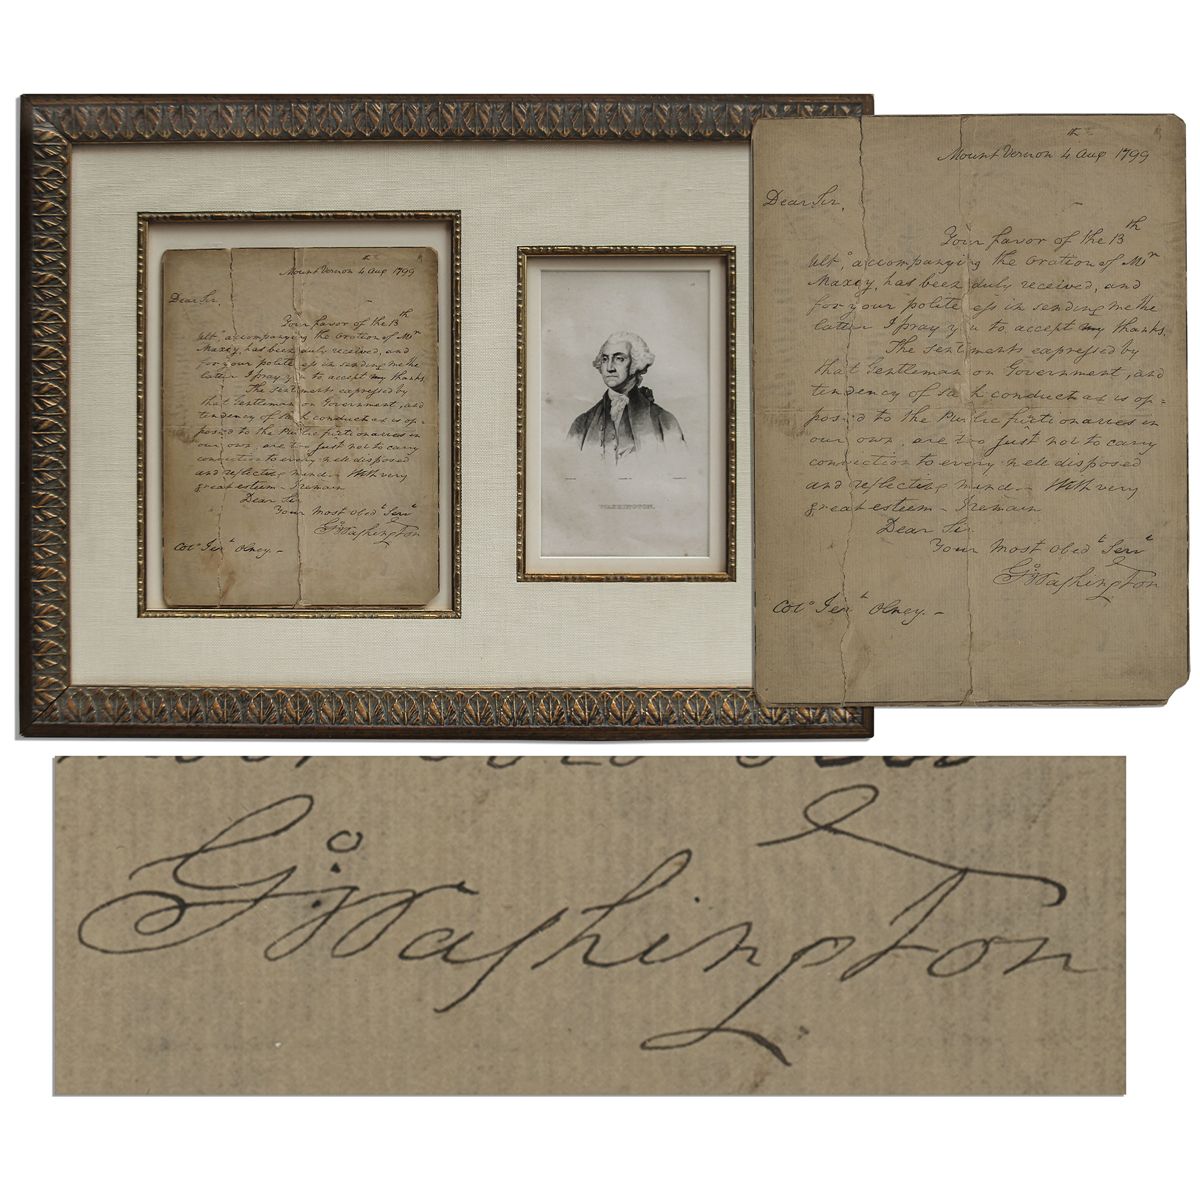 Mount Vernon 4th Aug 1799
Dear Sir,
Your favor of the 13th
Ult.o accompanying the Oration of Mr
Maxcy, has been duly received, and
for your polite ess in sending me the
latter I pray y u to accept my thanks.
The Sentiments expressed by
that Gentleman on Government, and
tendency of such conduct as is op=
posed to the Public functionaries in
our own, are too just not to carry
conviction to every well disposed
and reflecting mind. With very
great esteem - I remain
Dear Sir
Your Most Obedt Servt
Go Washington
Colo Jerh Olney. -
WASHINGTON.
Mount Vernon 4th Aug 1799
Dear Sir,
Your favor of the 13th
Ult.o accompanying the Oration of Mr
Maxcy, has been duly received, and
for your polite ess in sending me the
latter I pray y u to accept my thanks.
The Sentiments expressed by
that Gentleman on Government, and
tendency of such conduct as is op=
posed to the Public functionaries in
our own, are too just not to carry
conviction to every well disposed
and reflecting mind. With very
great esteem - I remain
Dear Sir
Your Most Obedt Servt
Go Washington
Colo Jerh Olney. -
Go Washington